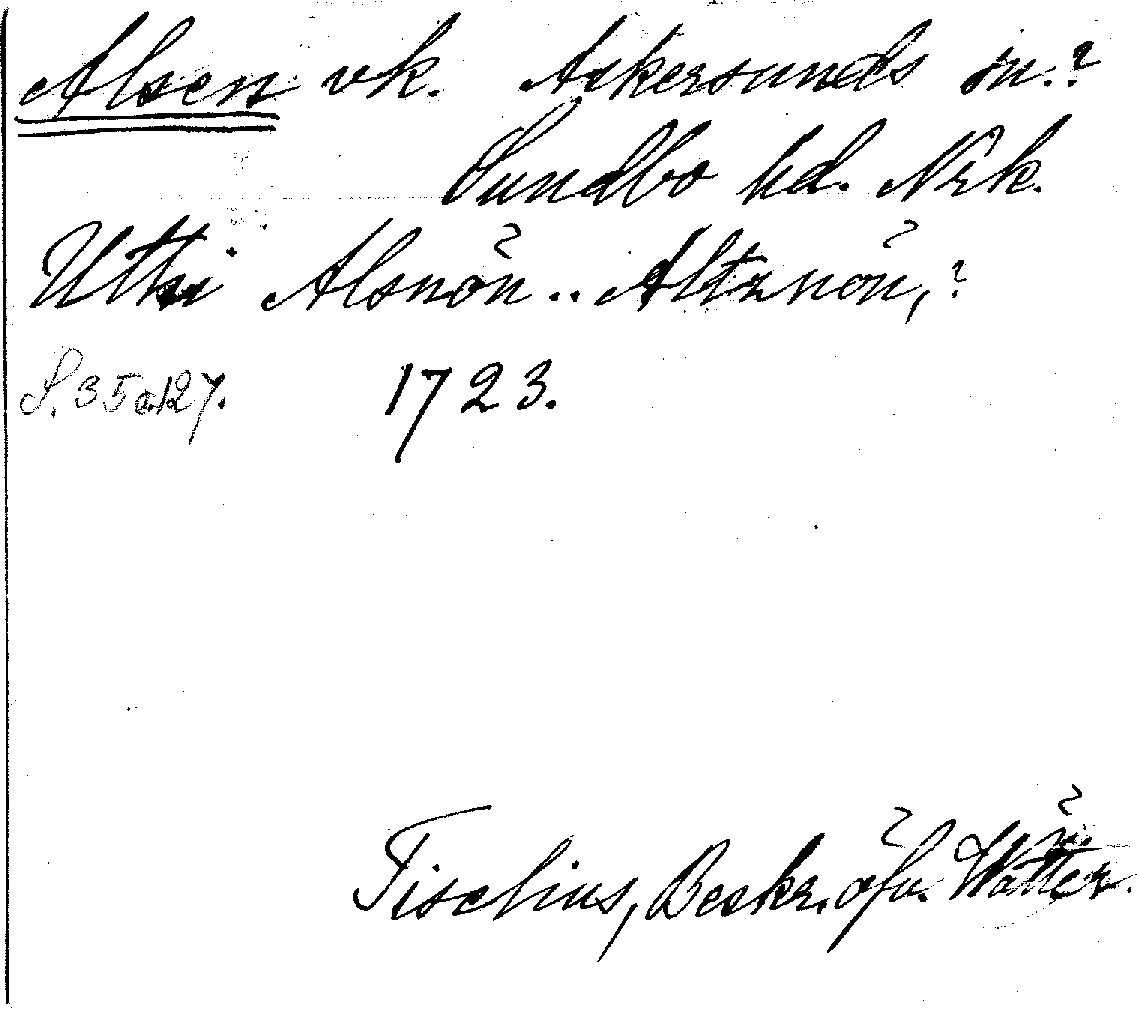 Alsen vk. Askersunds sn.?
Sundbo hd. Nrk.
Uthi Alsnön .. Altznön,?
S. 35 o. 127. 1723.
Tiselius, Beskr. öfv. Wätter.